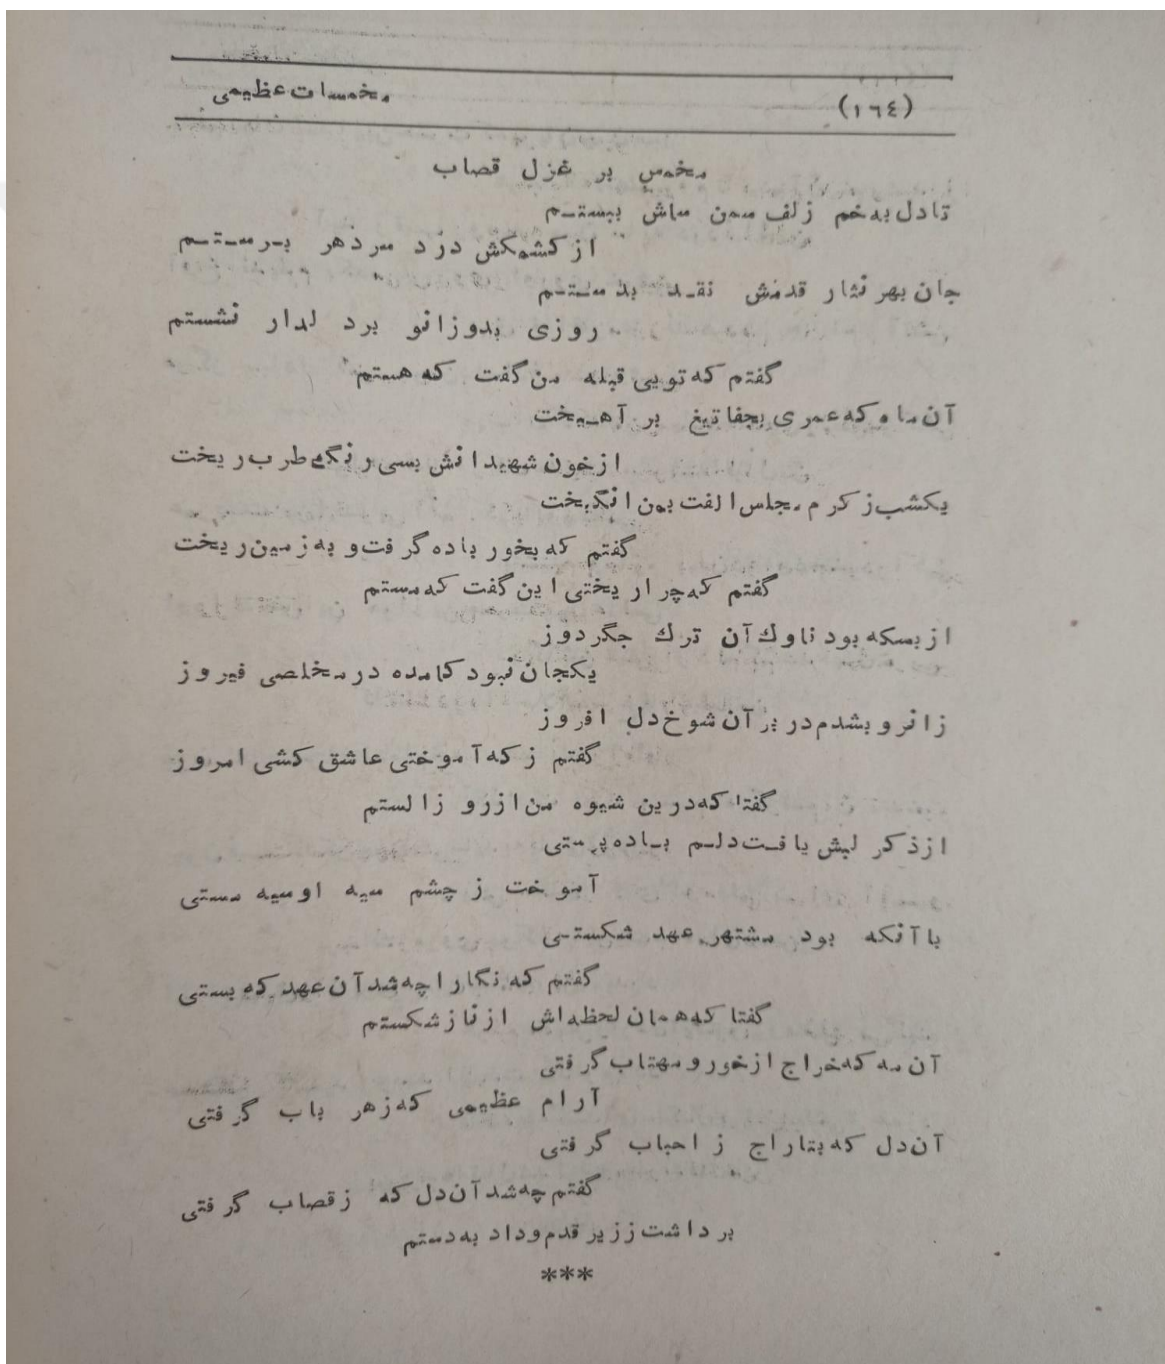 (١٦٤) مخمسات عظیمی
مخمس بر غزل قصاب
تادل بهخم زلف سمن ساش ببستم
از کشمکش درد سر دهر برستم
جان بهر نثار قدمش نقد بدستم
روزی بدوزانو بر دلدار نشستم
گفتم که تویی قبله من گفت که هستم
آن ماه که عمری بجفا تیغ بر آهیخت
از خون شهیدانش بسی رنگ طرب ریخت
یکشب ز کرم مجلس الفت بمن انگیخت
گفتم که بخور باده گرفت و به زمین ریخت
گفتم که چرا ریختی این گفت که مستم
از بسکه بود ناوك آن ترك جگر دوز
یکجان نبود کامده در مخلصی فیروز
زانرو بشدم در بر آن شوخ دل افروز
گفتم ز که آموختی عاشق کشی امروز
گفتا که درین شیوه من از روز الستم
از ذکر لبش یافت دلم باده پرستی
آموخت ز چشم سیه او سیه مستی
با آنکه بود مشتهر عهد شکستی
گفتم که نگارا چه شد آن عهد که بستی
گفتا که همان لحظه اش از ناز شکستم
آن مه که خراج از خور و مهتاب گرفتی
آرام عظیمی که زهر باب گرفتی
آن دل که بتاراج ز احباب گرفتی
گفتم چه شد آن دل که ز قصاب گرفتی
برداشت ز زیر قدم و داد به دستم
***